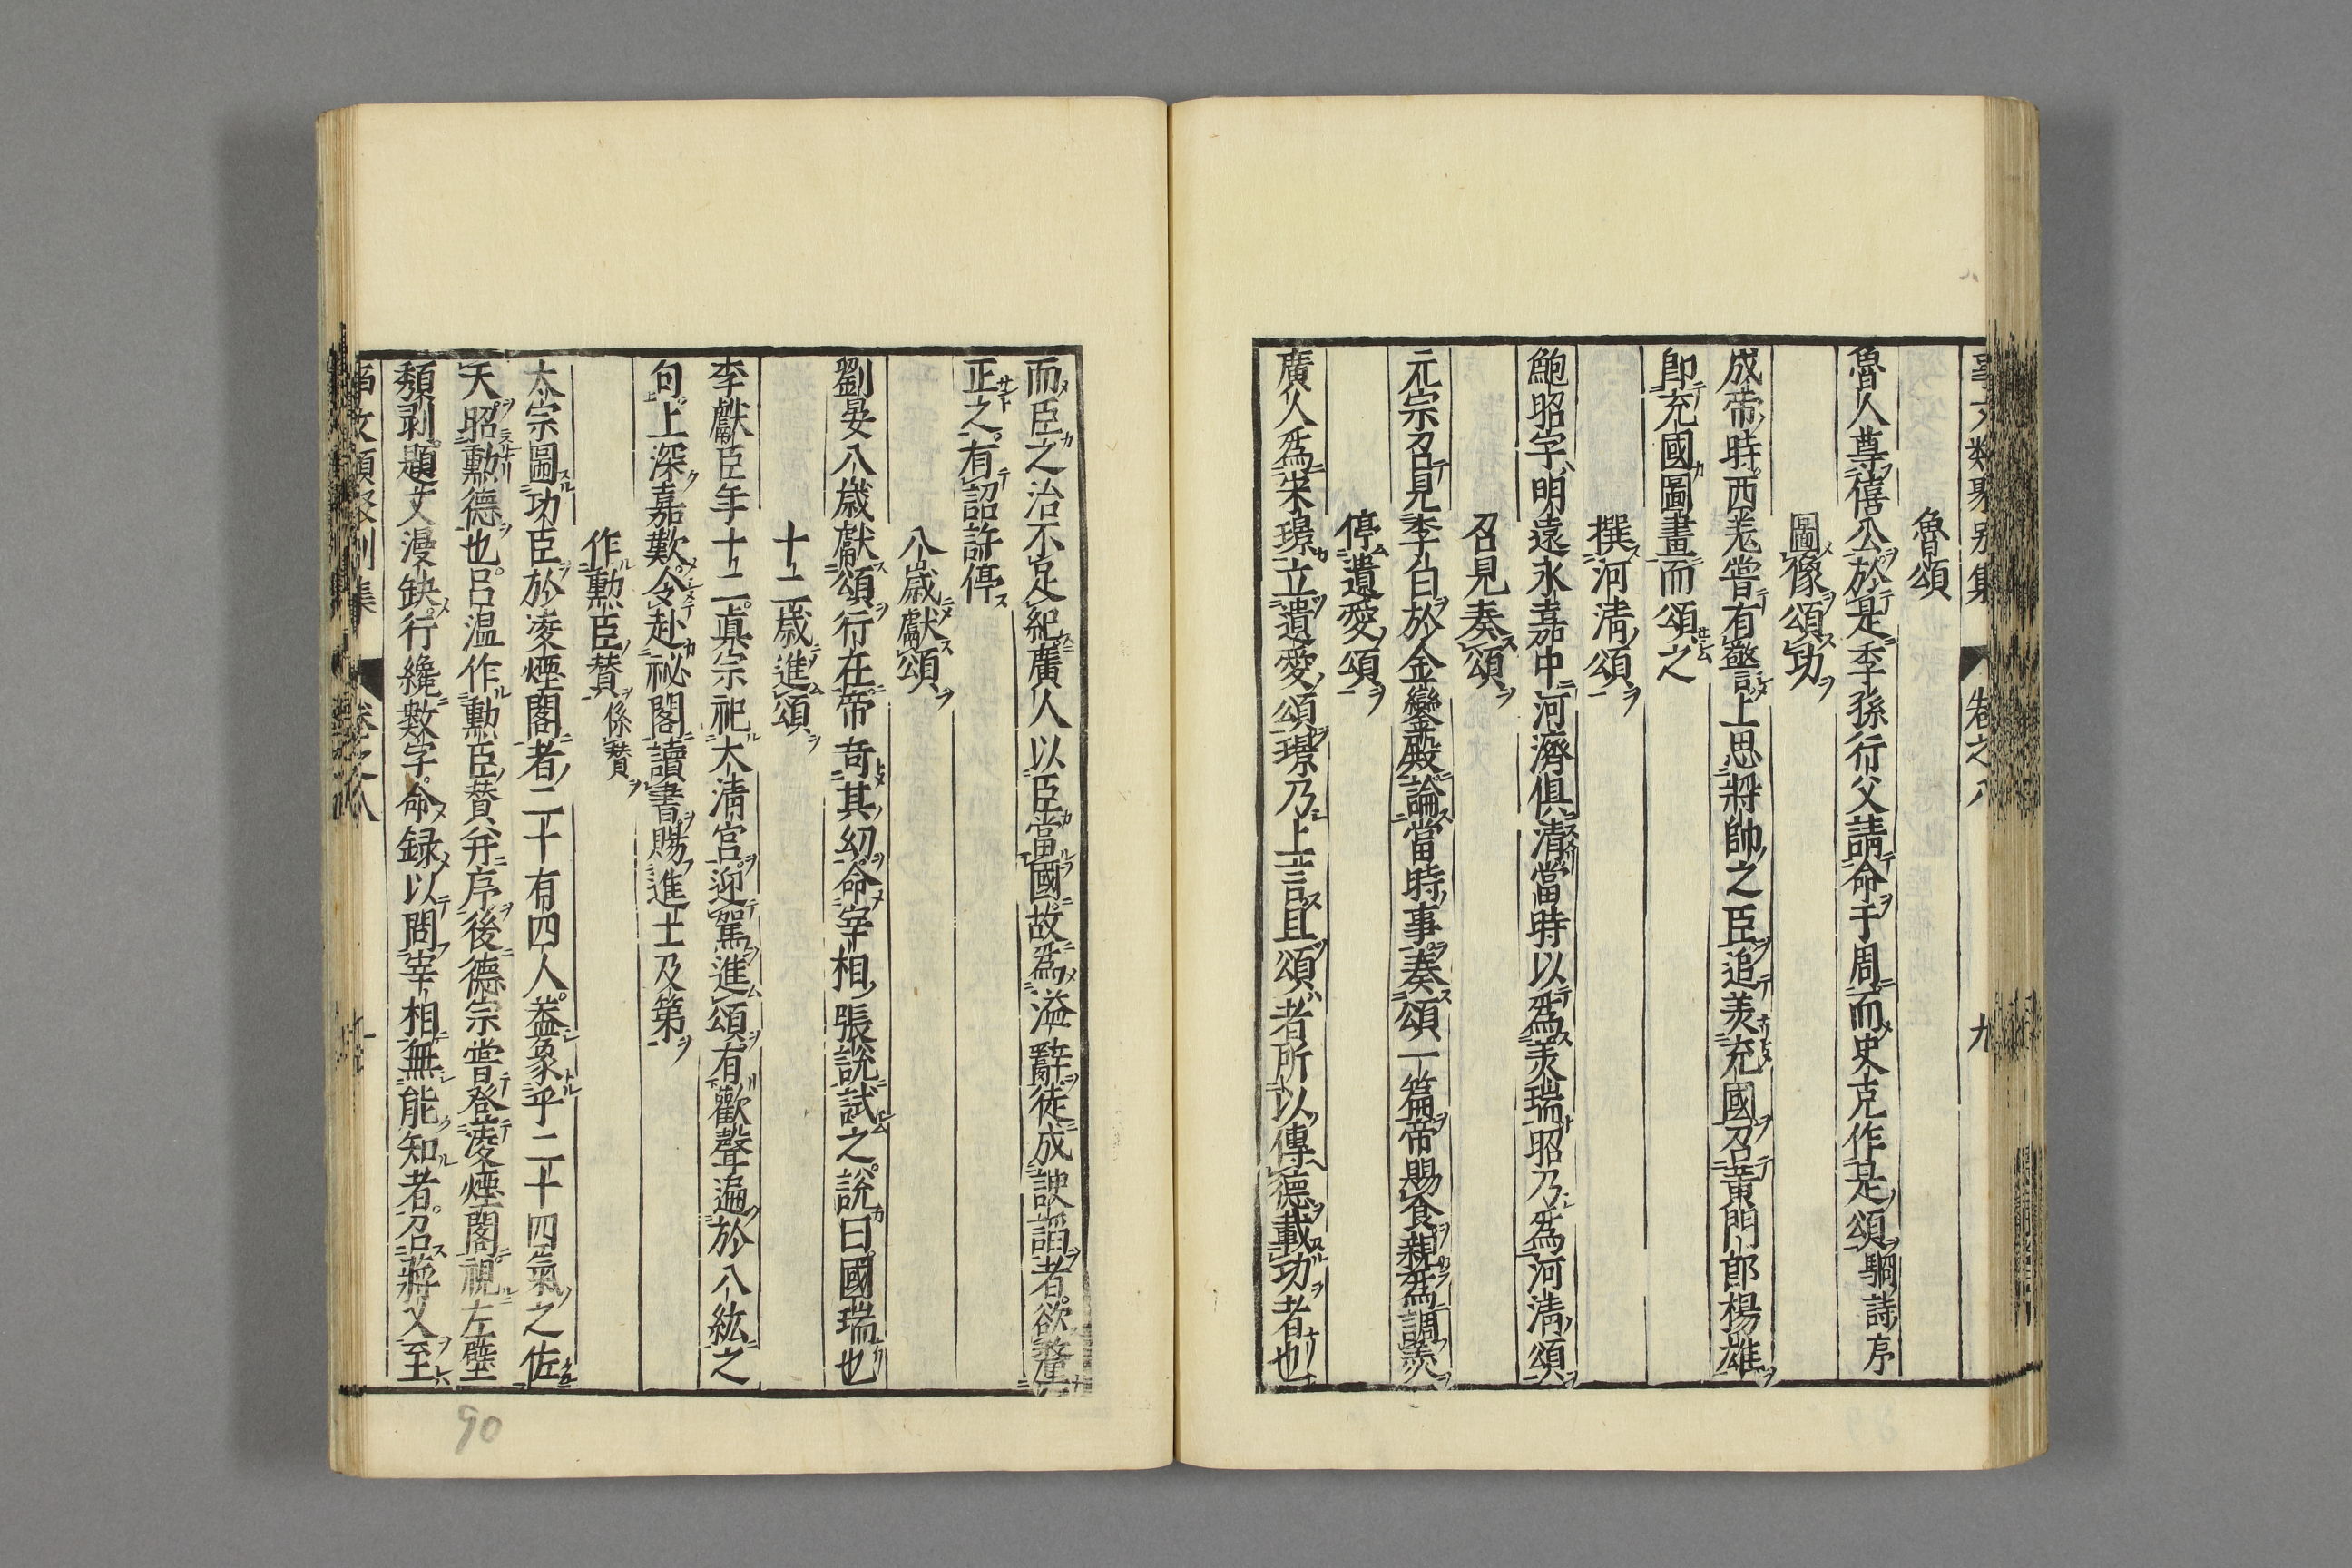 事文類聚別集 卷之八 九
魯頌
魯人尊僖公於是季孫行父請命于周而史克作是頌駉詩序
圖像頌功
成帝時西羌嘗有警上思將帥之臣追美充國召黄門郎楊雄
即充國圖畫而頌之
撰河清頌
鮑昭字明遠永嘉中河濟俱清當時以爲美瑞昭乃爲河清頌
召見奏頌
元宗召見李白於金鑾殿論當時事奏頌一篇帝賜食親爲調羨
停遺愛頌
廣人爲宋璟立遺愛頌璟乃上言且頌者所以傳德載功者也
而臣之治不足紀廣人以臣當國故爲溢辭徒成諛謟者欲釐
正之有詔許停
八歲獻頌
劉晏八歲獻頌行在帝竒其幼命宰相張説試之説曰國瑞也
十二歲進頌
李獻臣年十二真宗祀太清宫迎駕進頌有歡聲遍於八紘之
句上深嘉歎令赴祕閣讀書賜進士及第
作勳臣賛 係賛
太宗圖功臣於凌煙閣者二十有四人葢象乎二十四氣之佐
天昭勳德也呂温作勳臣賛并序後德宗嘗登凌煙閣視左壁
頽剥題文漫缺行纔數字命録以問宰相無能知者召蔣乂至
事文類聚別集 卷之八